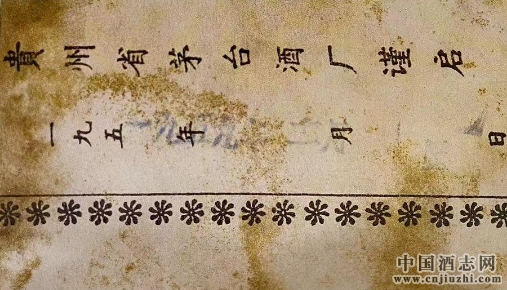 貴州省茅台酒厂谨启
一九五 年 月 日
中国酒志网
www.cnjiuzhi.com